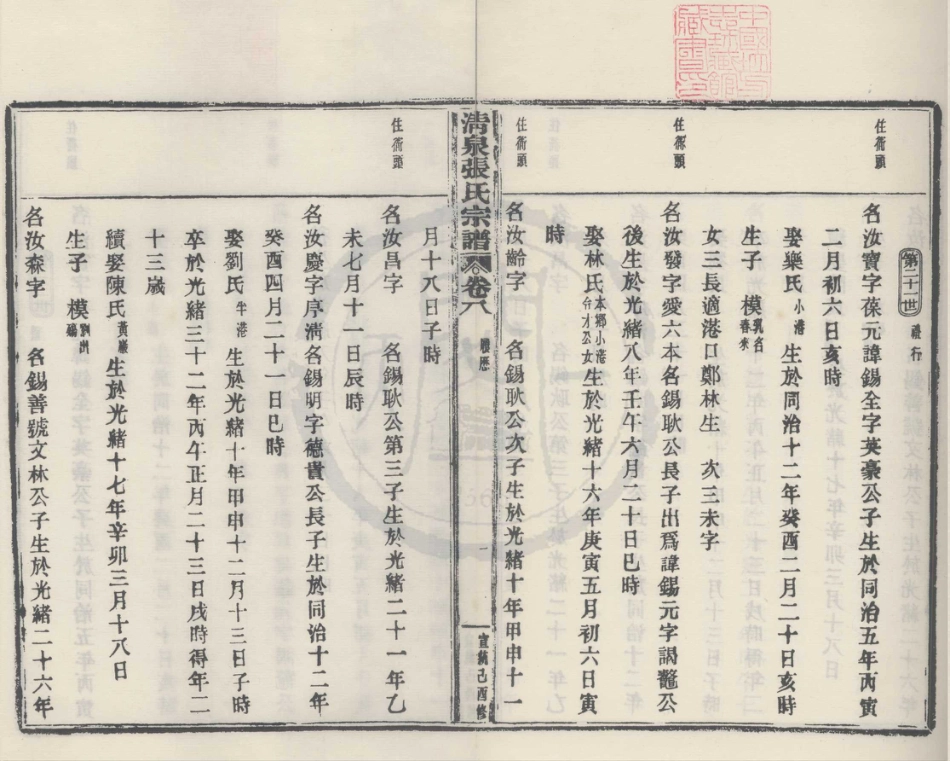 第二十一世 礼行
住衕頭
名汝寶字葆元諱錫全字英豪公子生於同治五年丙寅
二月初六日亥時
娶樂氏小港 生於同治十二年癸酉二月二十日亥時
生子 模乳名春來
女三長適港口鄭林生 次三未字
住衕頭
名汝發字愛六本名錫耿公長子出爲諱錫元字謁鼇公
後生於光緒八年壬午六月二十日巳時
娶林氏本鄉小港台才公女生於光緒十六年庚寅五月初六日寅
時
住衕頭
名汝齡字 名錫耿公次子生於光緒十年甲申十一
清泉張氏宗譜 卷八
禮恩
一
宣統己酉修
月十八日子時
住衕頭
名汝昌字 名錫耿公第三子生於光緒二十一年乙
未七月十一日辰時
名汝慶字序淸名錫明字德貴公長子生於同治十二年
癸酉四月二十一日巳時
娶劉氏牛港 生於光緒十年甲申十二月十三日子時
卒於光緒三十二年丙午正月二十三日戌時得年二
十三歲
續娶陳氏黃巖 生於光緒十七年辛卯三月十八日
生子 模劉出
名汝森字 名錫善號文林公子生於光緒二十六年
中國
藏書